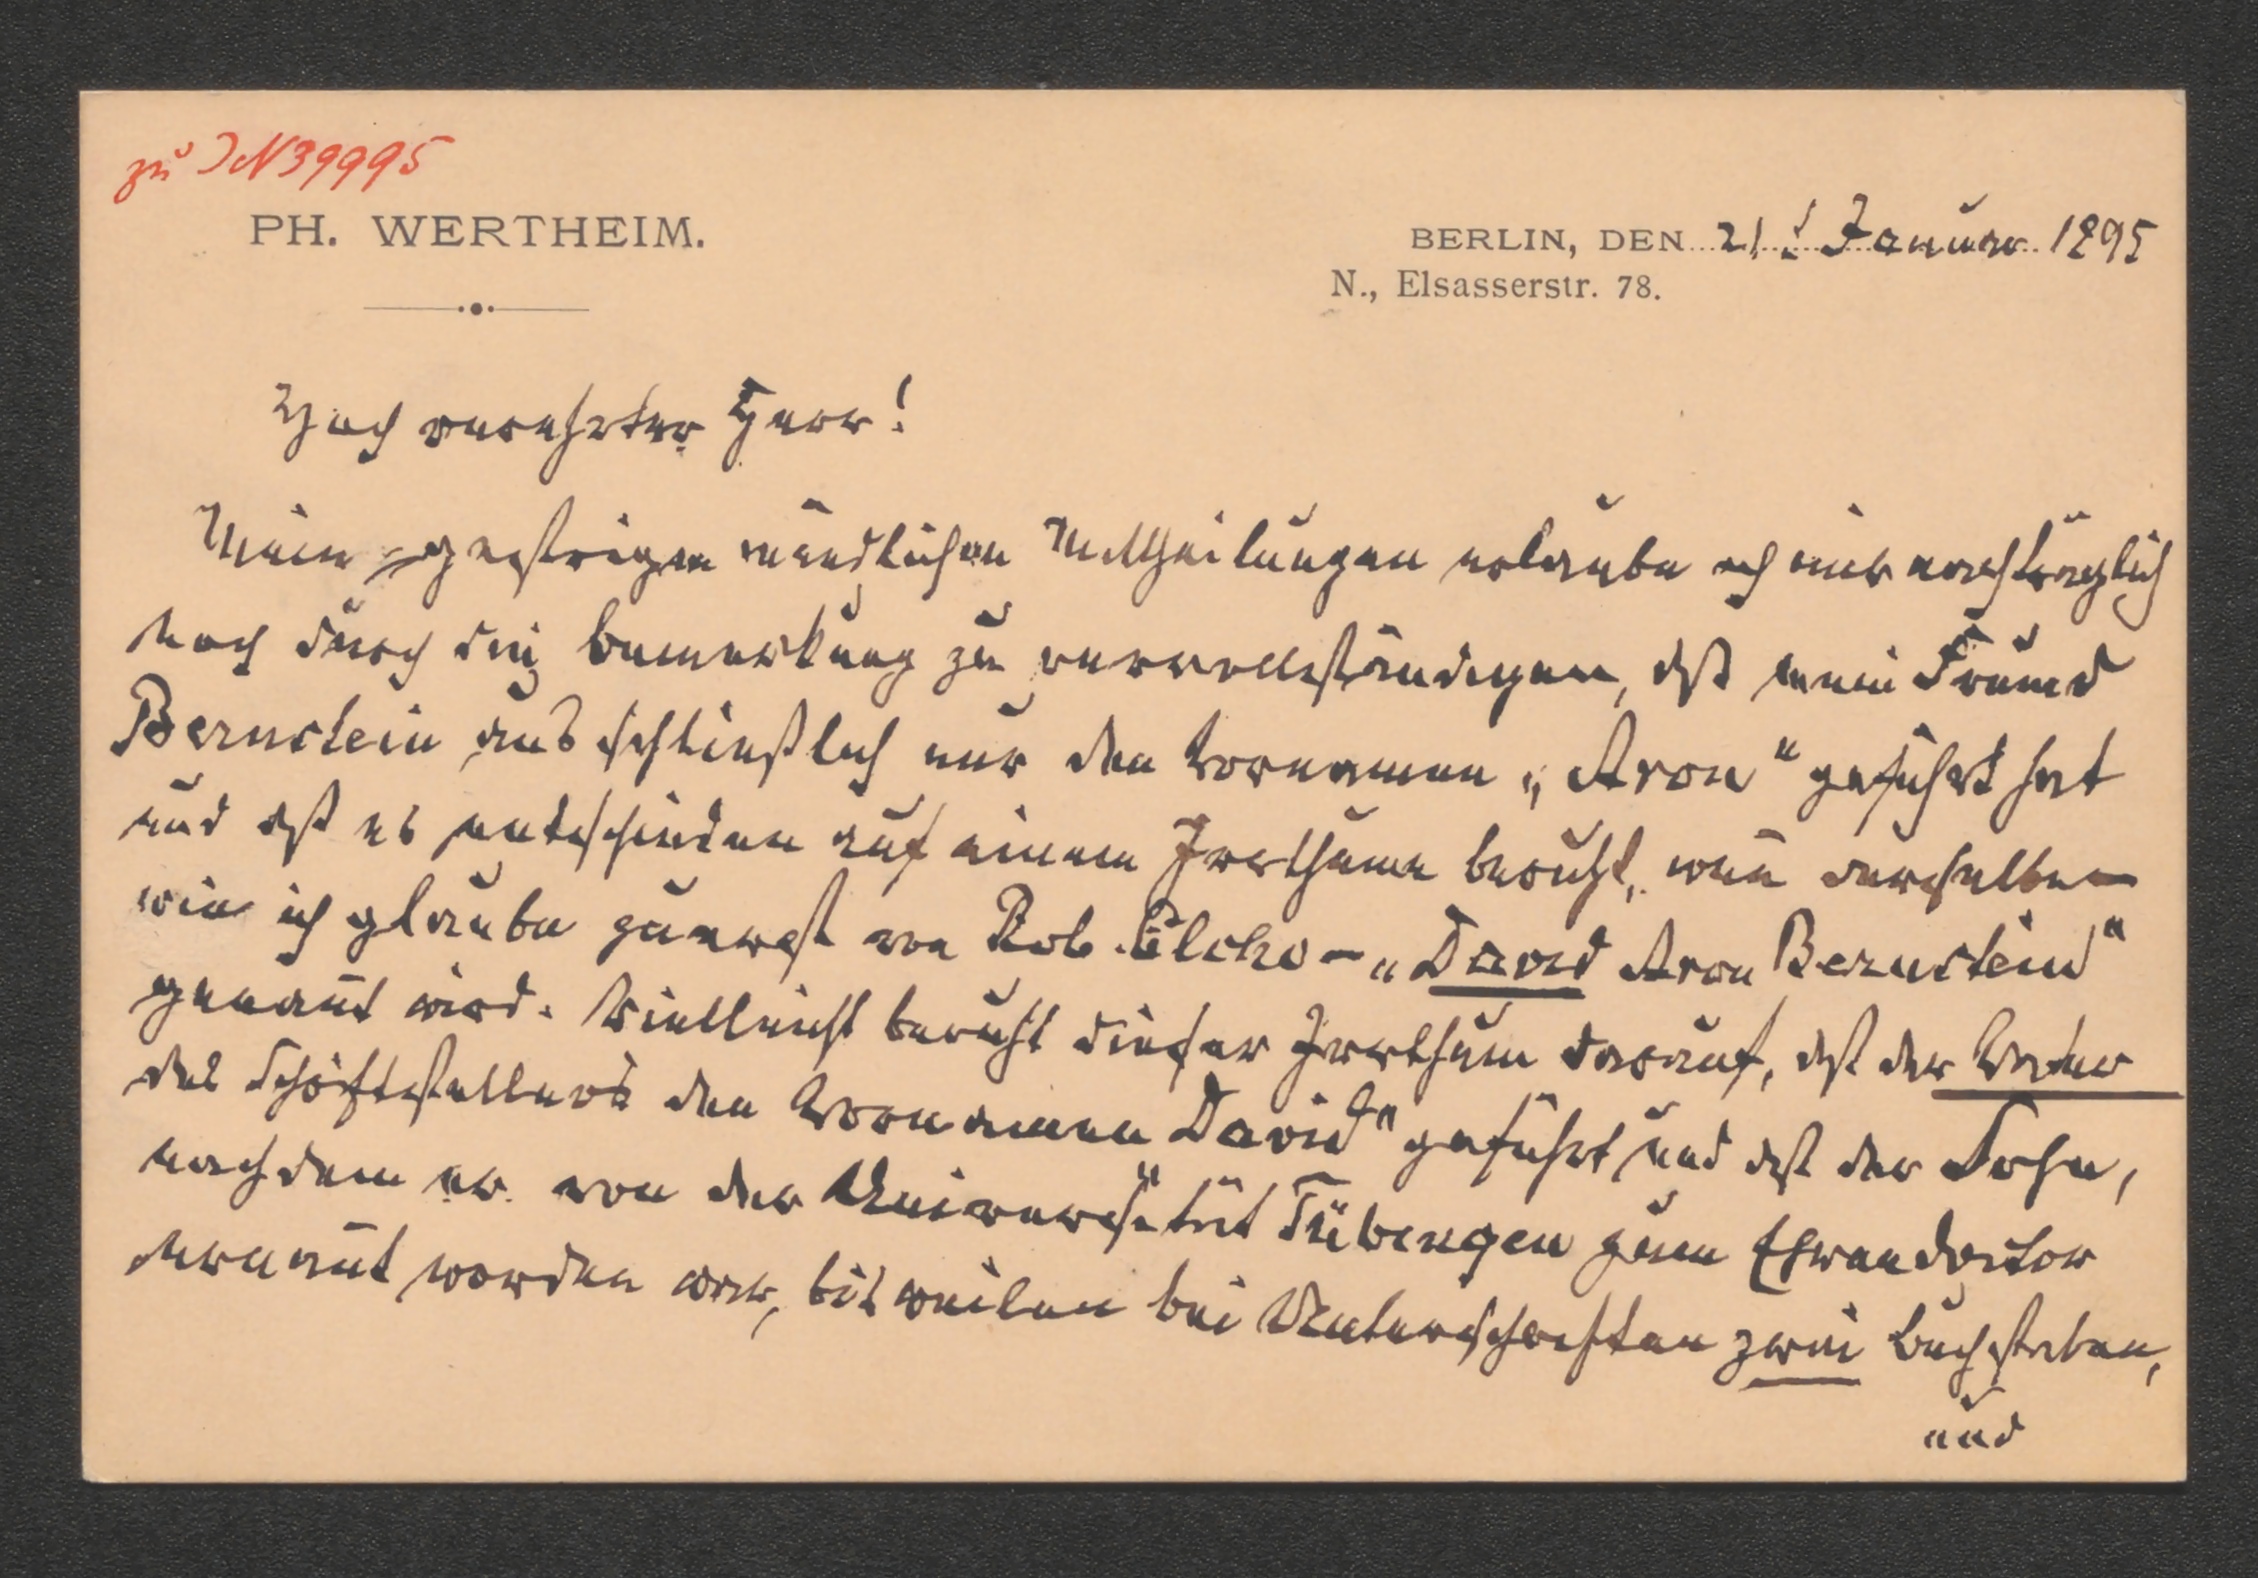 zu IN 39995
PH. WERTHEIM.
BERLIN, DEN 21. Januar 1895
N., Elsasserstr. 78.
Hoch verehrter Herr!
Mein gestrigen mündlichen Mittheilungen erlaube ich mir nachträglich
noch durch die Bemerkung zu vervollständigen, daß mein Freund
Bernstein ausschließlich nur den Vornamen „Aron“ geführt hat
und daß es entschieden auf einem Irrthume beruht, wenn derselbe –
wie ich glaube zuerst von Rob. Elcho – „David Aron Bernstein“
genannt wird. Vielleicht beruht dieser Irrthum darauf, daß der Vater
des Schriftstellers den Vornamen David“ geführt und daß der Sohn,
nachdem er von der Universität Tübingen zum Ehrendoctor
ernannt worden war, bisweilen bei Unterschriften zwei Buchstaben,
und